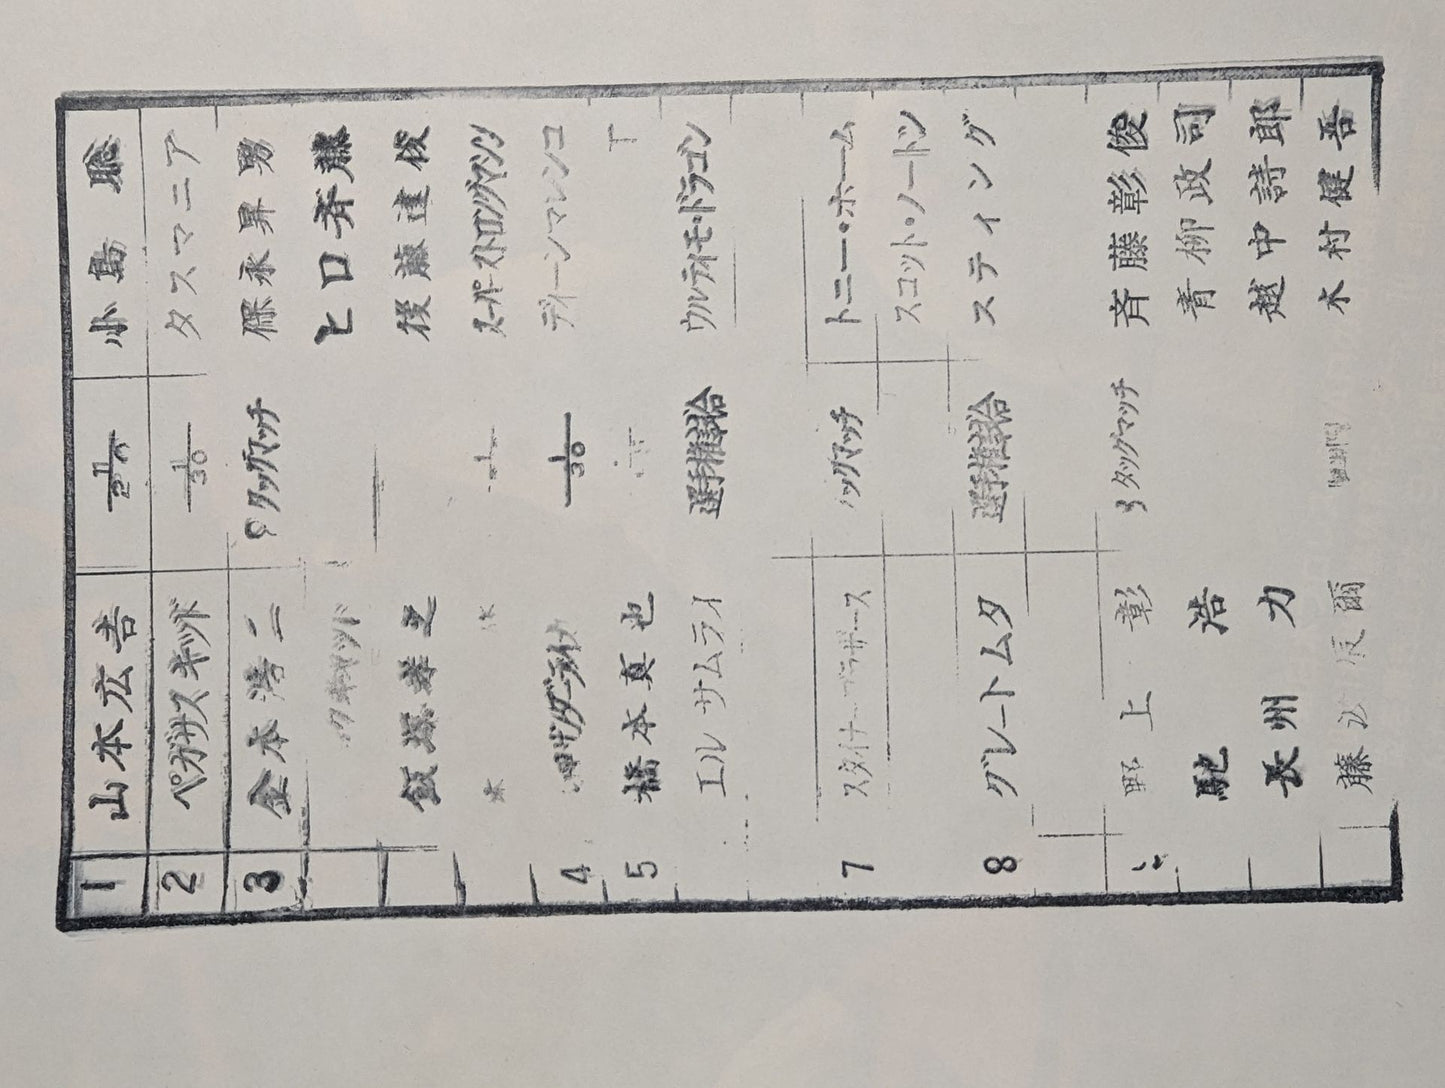 1 山本広吉 1/20 小島聡
2 ペガサスキッド 1/30 タスマニア
3 金本浩二 タッグマッチ 保永昇男
キッド ヒロ斉藤
飯塚孝之 後藤達俊
スーパーストロングマシン
4 サンダーライガー 1/30 ディーンマレンコ
5 橋本真也
エルサムライ 選手権試合 ウルティモ・ドラゴン
7 スタイナーブラザース ッグマッチ トニー・ホーム
スコット・ノートン
8 グレートムタ 選手権試合 スティング
野上彰 タッグマッチ 斉藤彰俊
馳浩 青柳政司
長州力 越中詩郎
藤波辰爾 木村健吾